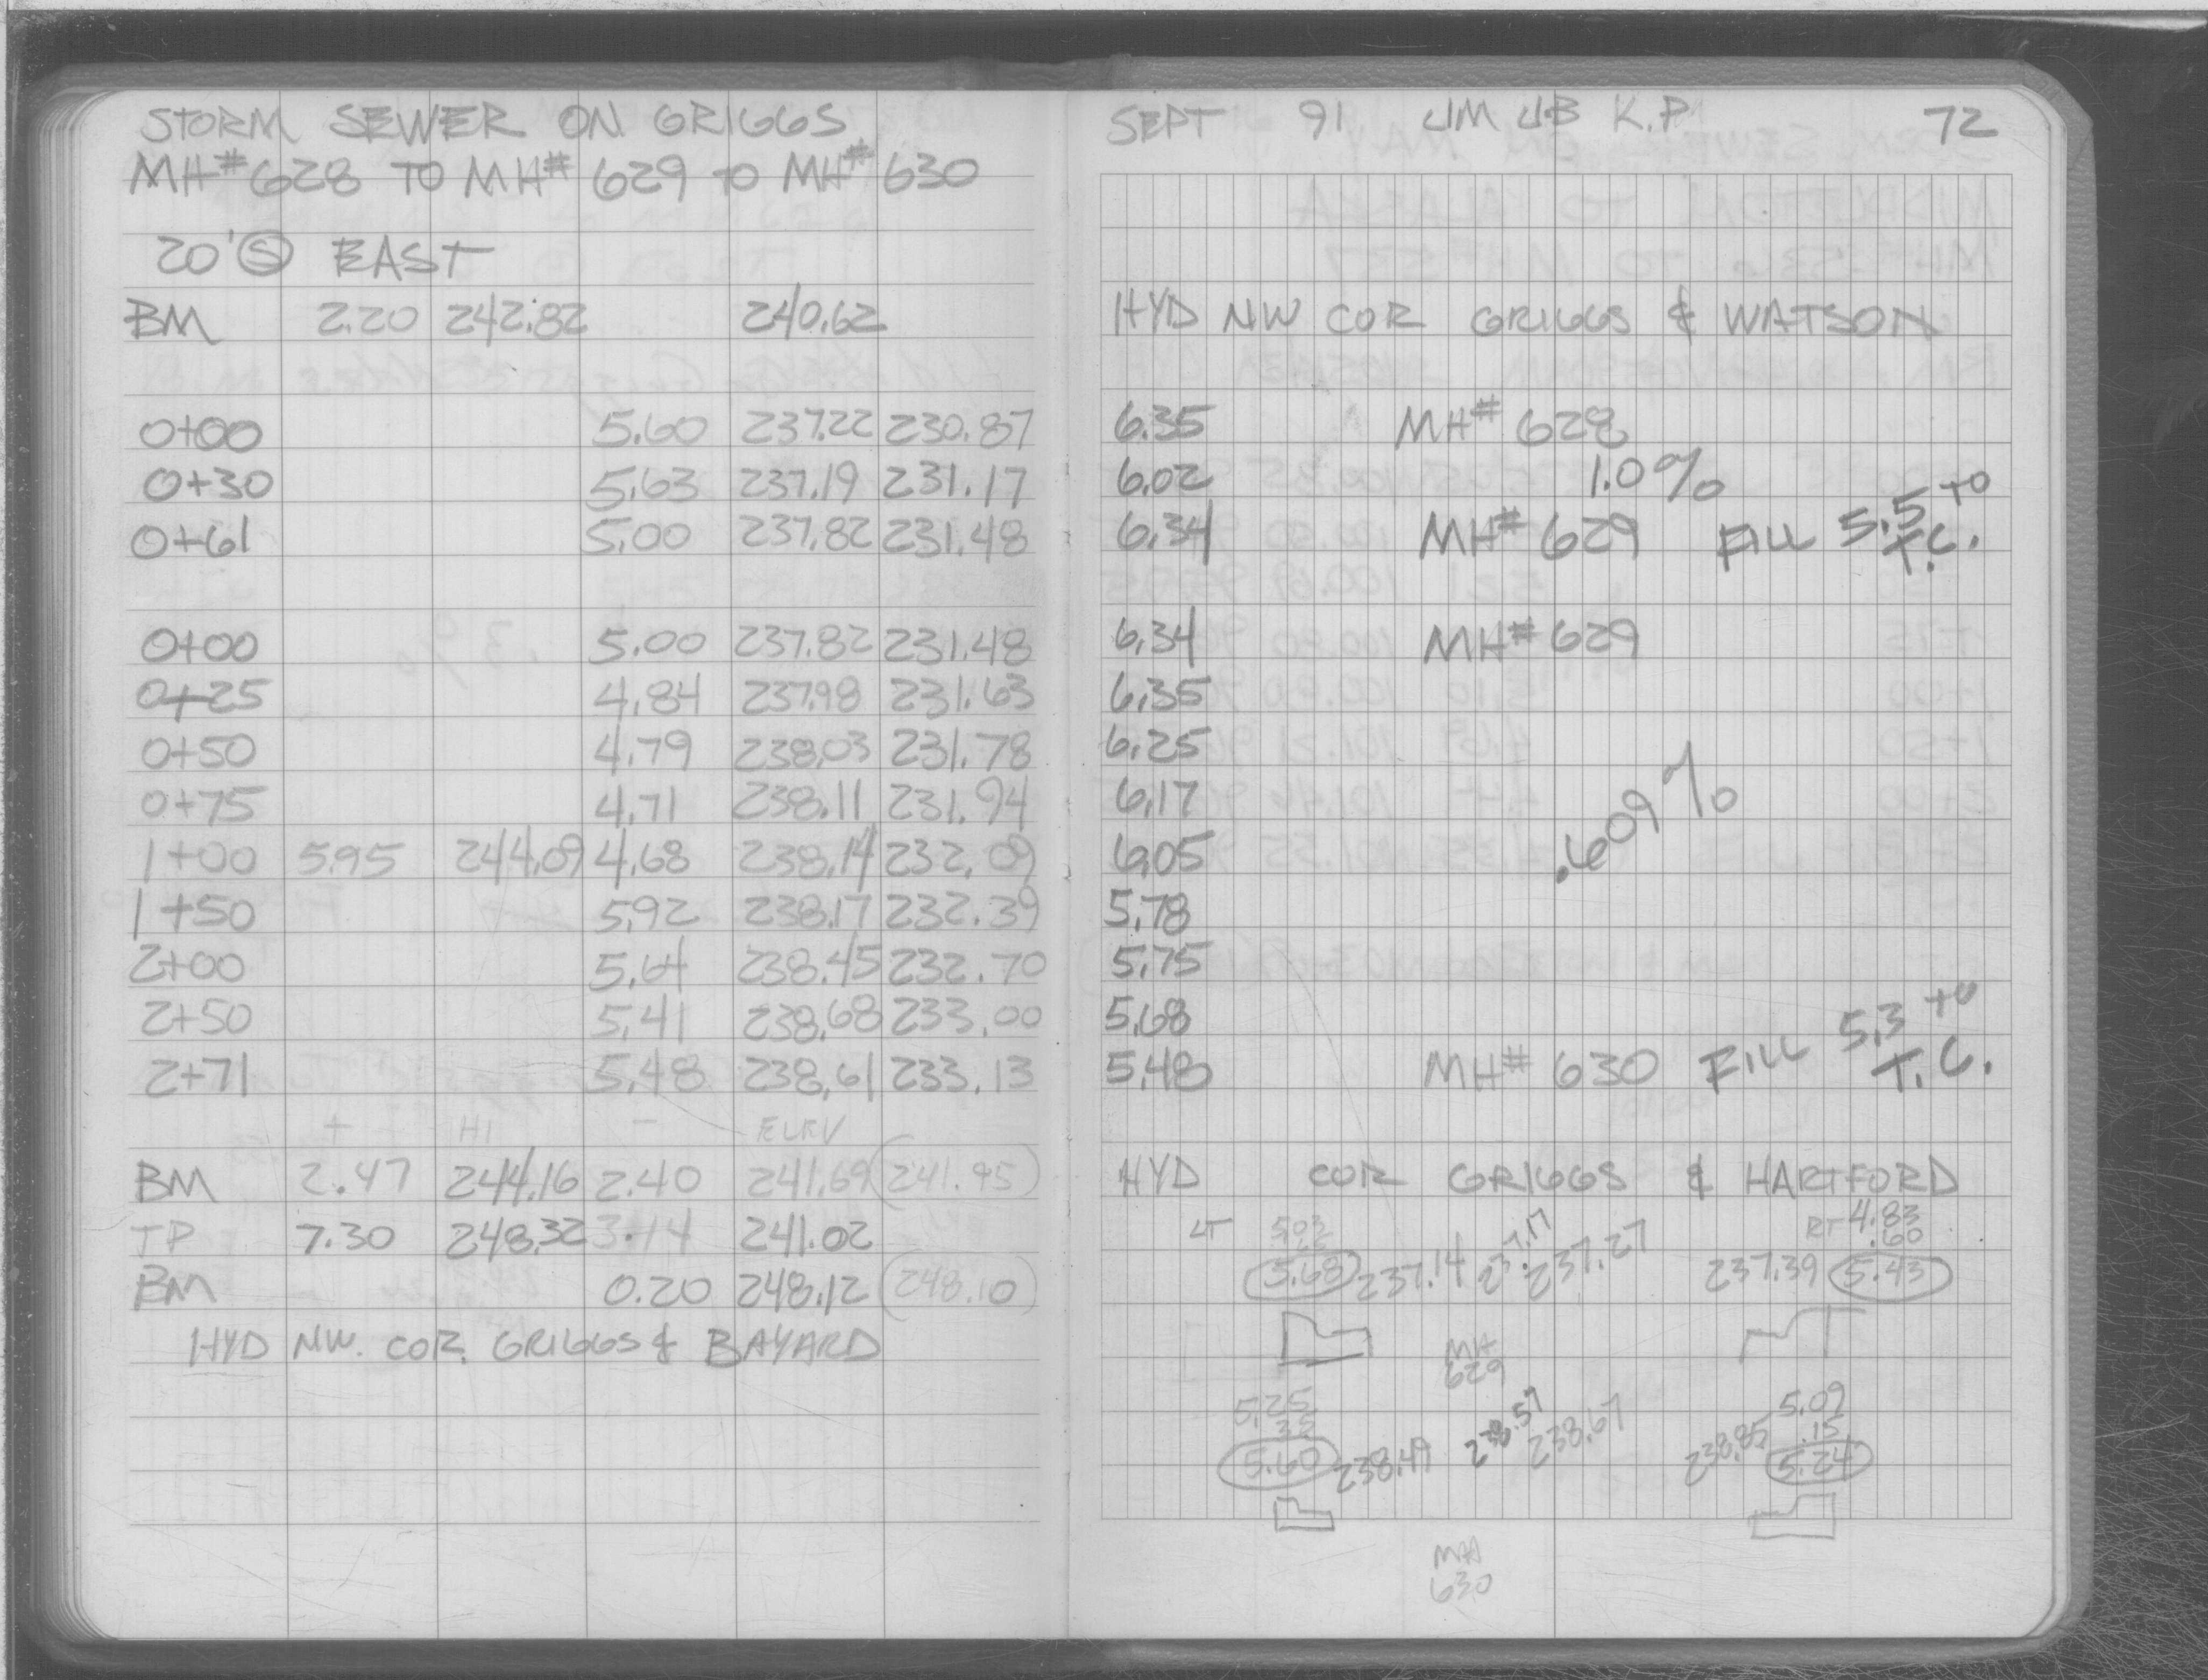 STORM SEWER ON GRIGGS
MH# 628 TO MH# 629 TO MH# 630
20' Ⓢ EAST
BM 2.20 242.82 240.62
0+00 5.60 237.22 230.87
0+30 5.63 237.19 231.17
0+61 5.00 237.82 231.48
0+00 5.00 237.82 231.48
0+25 4.84 237.98 231.63
0+50 4.79 238.03 231.78
0+75 4.71 238.11 231.94
1+00 5.95 244.09 4.68 238.14 232.09
1+50 5.92 238.17 232.39
2+00 5.64 238.45 232.70
2+50 5.41 238.68 233.00
2+71 5.48 238.61 233.13
+ HI - ELEV
BM 2.47 244.16 2.40 241.69 (241.95)
TP 7.30 248.32 3.14 241.02
BM 0.20 248.12 (248.10)
HYD NW. COR. GRIGGS & BAYARD
SEPT 91 JM JB K.P. 72
HYD NW COR GRIGGS & WATSON
6.35 MH# 628
6.02 1.0%
6.34 MH# 629 FILL 5.5 TO T.C.
6.34 MH# 629
6.35
6.25
6.17
6.05 .609%
5.78
5.75
5.68
5.48 MH# 630 FILL 5.3 TO T.C.
HYD COR GRIGGS & HARTFORD
LT RT 4.83
.60
5.68 237.14 237.17 237.27 237.39 5.43
MH
629
5.25 5.09
.35 .15
5.60 238.49 238.57 238.67 238.85 5.24
MH
630